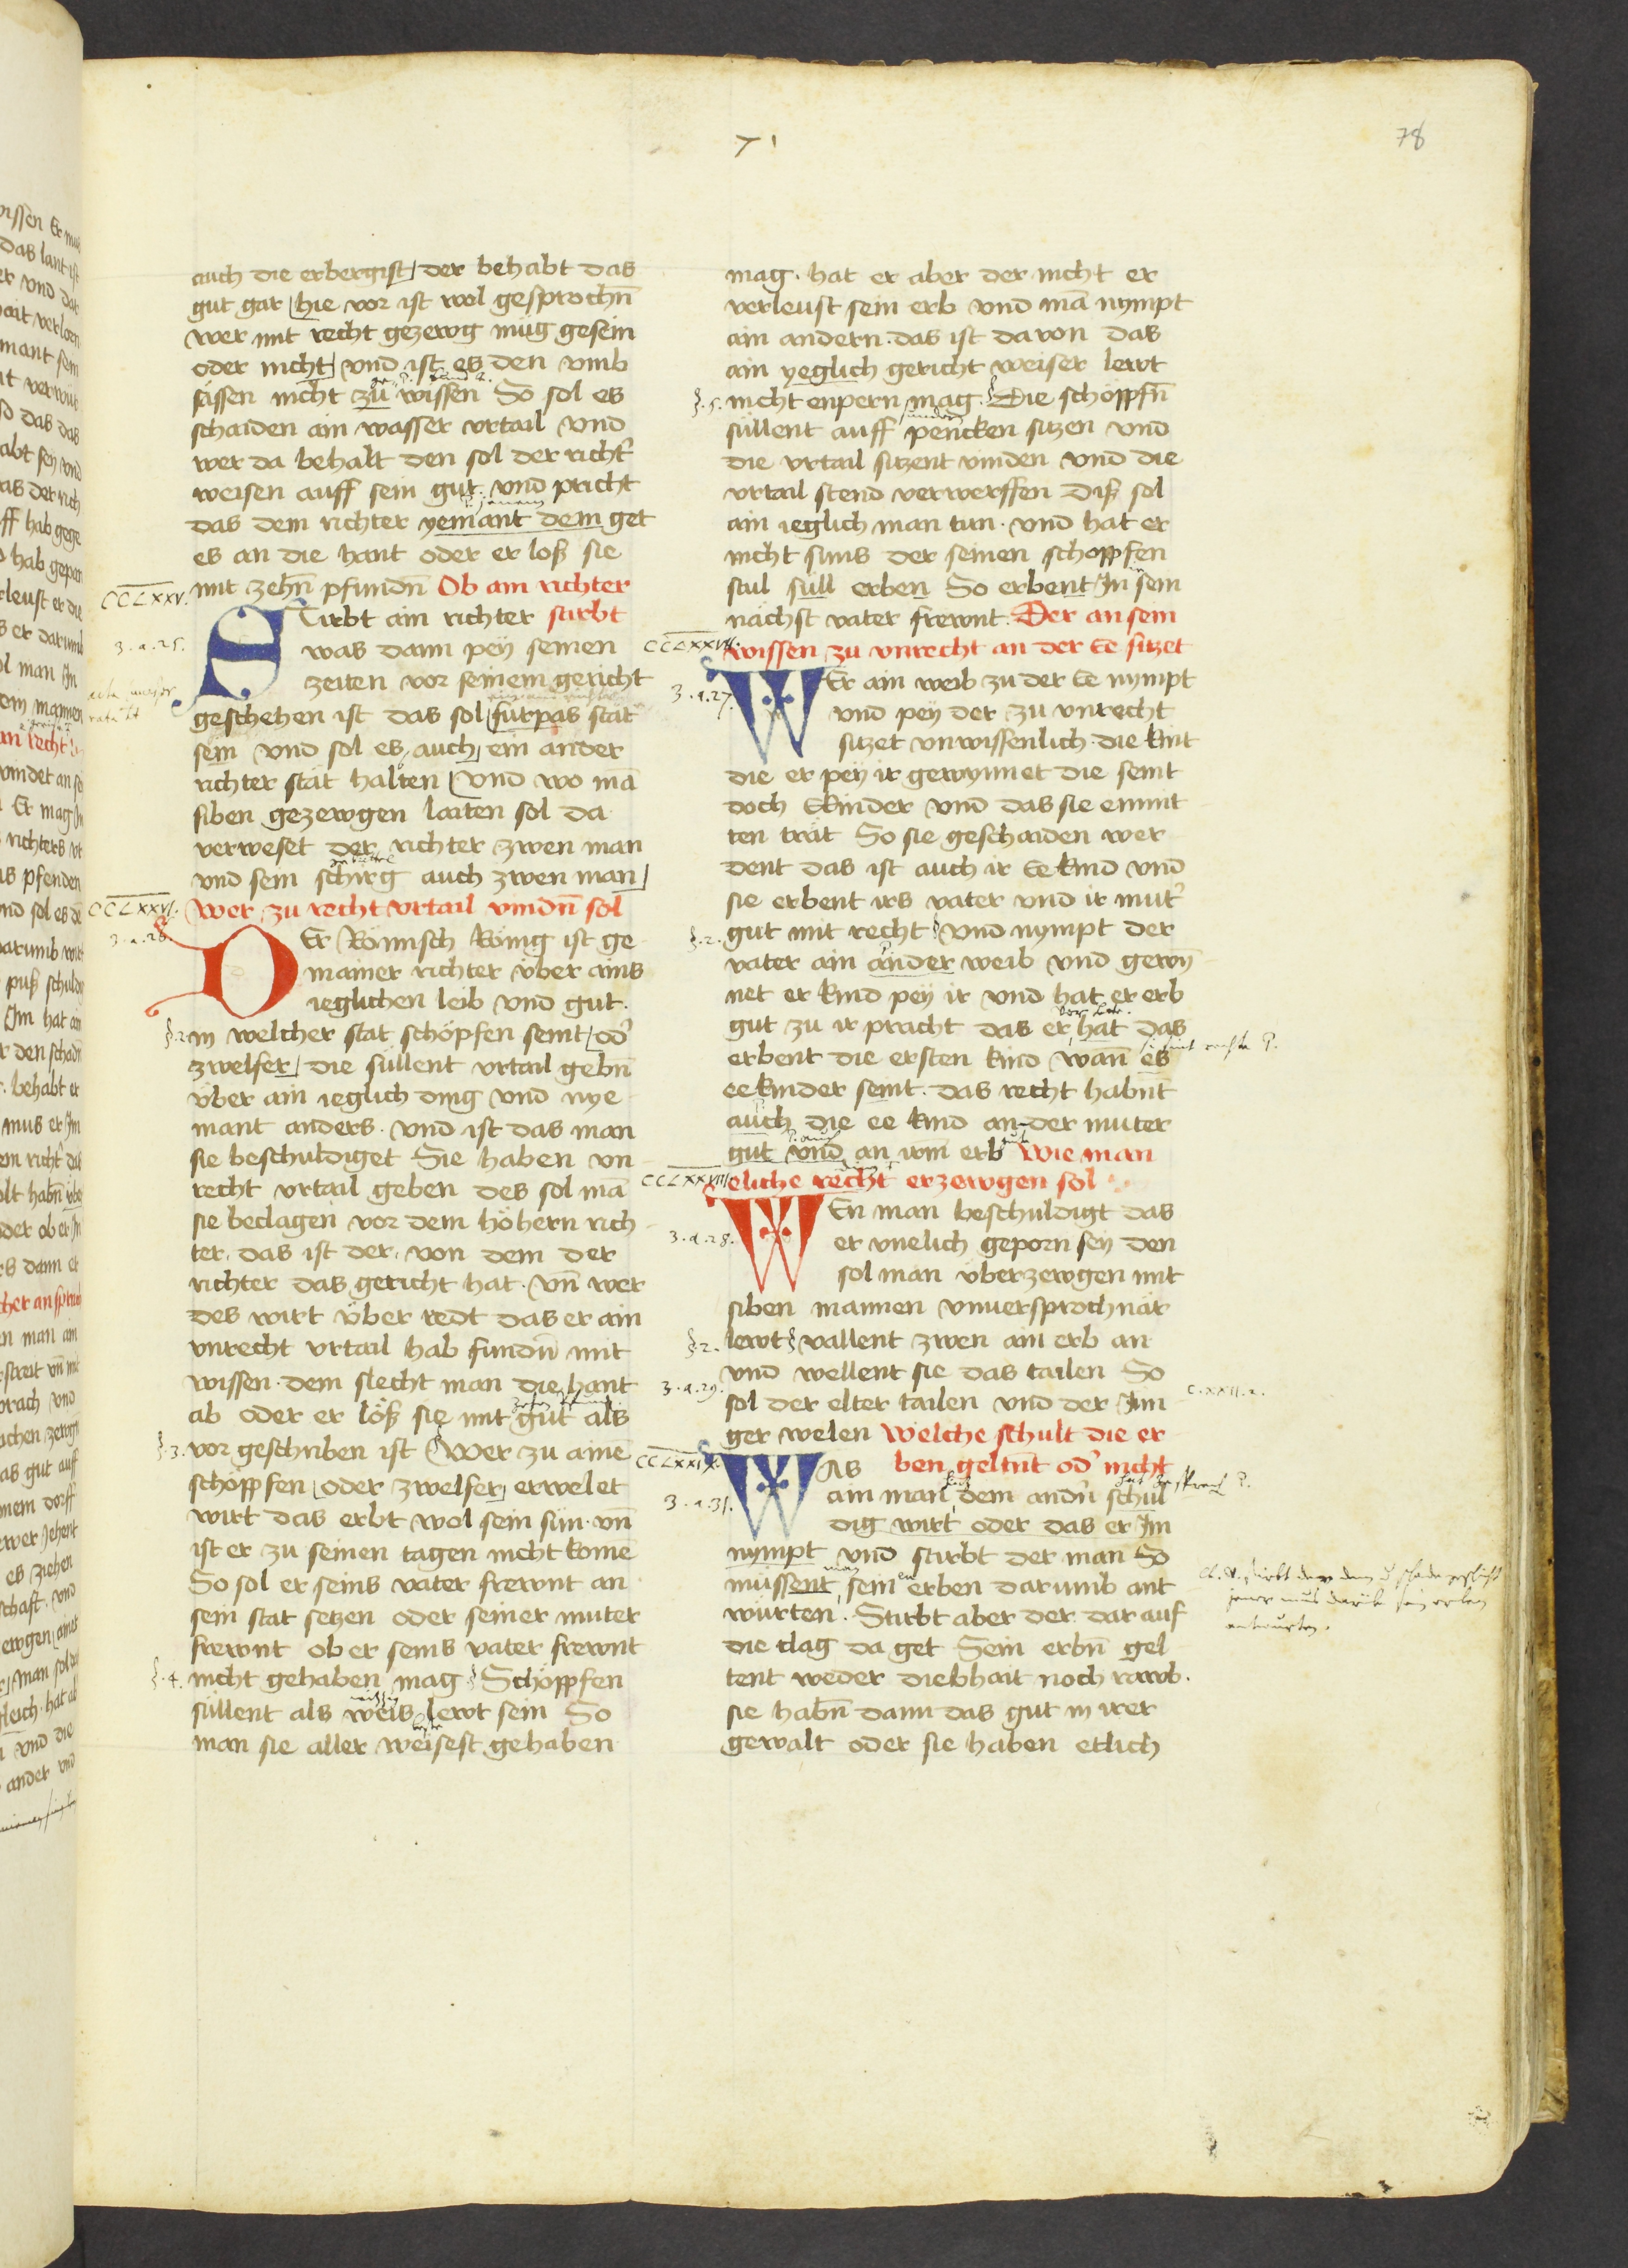 78
auch die erbergist der behabt das
gut gar hie vor ist wol gesprochn̄
wer mit recht gezewg müg gesein
oder nicht vnd ist es den vmb
sässen nicht zu wissen So sol es
schaiden ain wasser vrtail vnd
wer da behalt den sol der richt̓
weisen auff sein gut. vnd pricht
das dem richter yemant dem get
es an die hant oder er löß sie
mit zehn̄ pfundn̄ Ob ain richter
CCLXXV.
Stirbt ain richter stirbt
3.a.25.
was dann pëy seinen
zeiten vor seinem gericht
geschehen ist das sol fürpas stät
sein vnd sol es auch ein ander
richter stät halten vnd wo mā
siben gezewgen laiten sol da
verweset der richter zwen man
vnd sein schirg auch zwen man
CCLXXVI. Wer zu recht vrtail vindn̄ sol
3.a.26
DEr Römisch König ist ge
mainer richter vber ains
ieglichen leib vnd gut.
§.2. in welcher stat schöpfen seint od̓
zwelfer die süllent vrtail gebn̄
vber ain ieglich ding vnd nye
mant anders. vnd ist das man
sie beschuldiget Sie haben vn
recht vrtail geben des sol mā
sie beclagen vor dem höhern rich
ter. das ist der. von dem der
richter das gericht hat. vn̄ wer
des wirt vber redt das er ain
vnrecht vrtail hab fundn̄ mit
wissen. dem slecht man die hant
ab oder er löß sie mit gut als
§.3. vor geschriben ist Wer zu ainē
schöppfen oder zwelfer erwelet
wirt das erbt wol sein sün. vn̄
ist er zu seinen tagen nicht komē
So sol er seins vater frewnt an
sein stat setzen oder seiner muter
frewnt ob er seins vater frewnt
§.4. nicht gehaben mag Schöppfen
süllent als weis lewt sein So
man sie aller weisest gehaben
mag. hat er aber der nicht er
verleust sein erb vnd mā nympt
ain andern. das ist davon das
ain yeglich gericht weiser lewt
§.5. nicht enpern mag. Die schöppfn̄
süllent auff pencken sitzen vnd
die vrtail sitzent vinden vnd die
vrtail stend verwerffen diß sol
ain ieglich man tun. vnd hat er
nicht süns der seinen schoppfen
stul süll erben So erbent In sein
nächst vater frewnt. Der an sein
CCLXXVII. wissen zu vnrecht an der Ee sitzet
3.a.27.
WEr ain weib zu der Ee nympt
vnd pey der zu vnrecht
sitzet vnwissenlich. die kint
die er pëy ir gewynnet die seint
doch Ekinder vnd das sie enmit
ten trät So sie geschaiden wer
dent das ist auch ir Ee kind vnd
sie erbent irs vater vnd ir mut̓
§.2. gut mit recht vnd nympt der
vater ain ander weib vnd gewȳ
net er kind pey ir vnd hat er erb
gut zu ir pracht das er hat das
erbent die ersten kind wann es
ee kinder seint. das recht habnt
auch die ee kind an der muter
gut vnd an irm erb Wie man
CCLXXVIII eliche recht erzewgen sol
WEn man beschuldigt das
3.a.28.
er vnelich geporn sey den
sol man vberzewgen mit
siben mannen vnuersprochnär
§.2. lewt vallent zwen ain erb an
vnd wellent sie das tailen So
3.a.29.
sol der elter tailen vnd der Jun
C.XXII.2.
ger welen Welche schult die er
CCLXXIX.
WAs ben geltn̄t od̓ nicht
3.a.31.
ain man dem andn̄ schul
dig wirt oder das er Im
nympt vnd stirbt der man So
müssent sein erben darumb ant
würten. Stirbt aber der dar auf
die clag da get Sein erbn̄ gel
tent weder diebhait noch rawb.
sie habn̄ dann das gut in irer
gewalt oder sie haben etlich